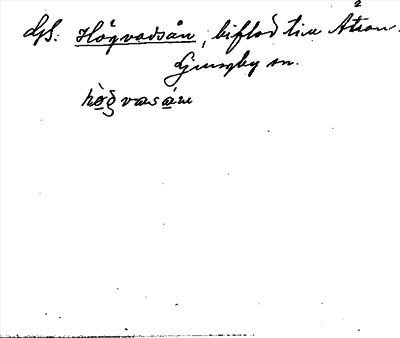 Jfr. Högvadsån, biflod till Ätran.
Ljungby sn.
hò̱g vasá̱n